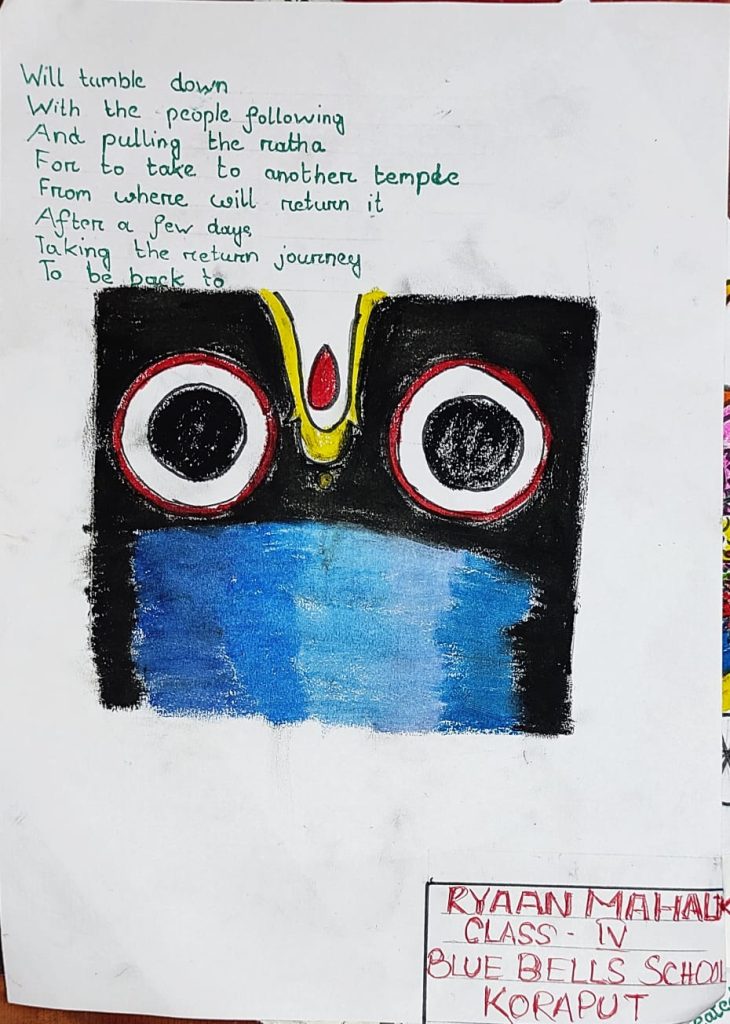 Will tumble down
With the people following
And pulling the ratha
For to take to another temple
From where will return it
After a few days,
Taking the return journey
To be back to
RYAAN MAHALIK
CLASS - IV
BLUE BELLS SCHOOL
KORAPUT